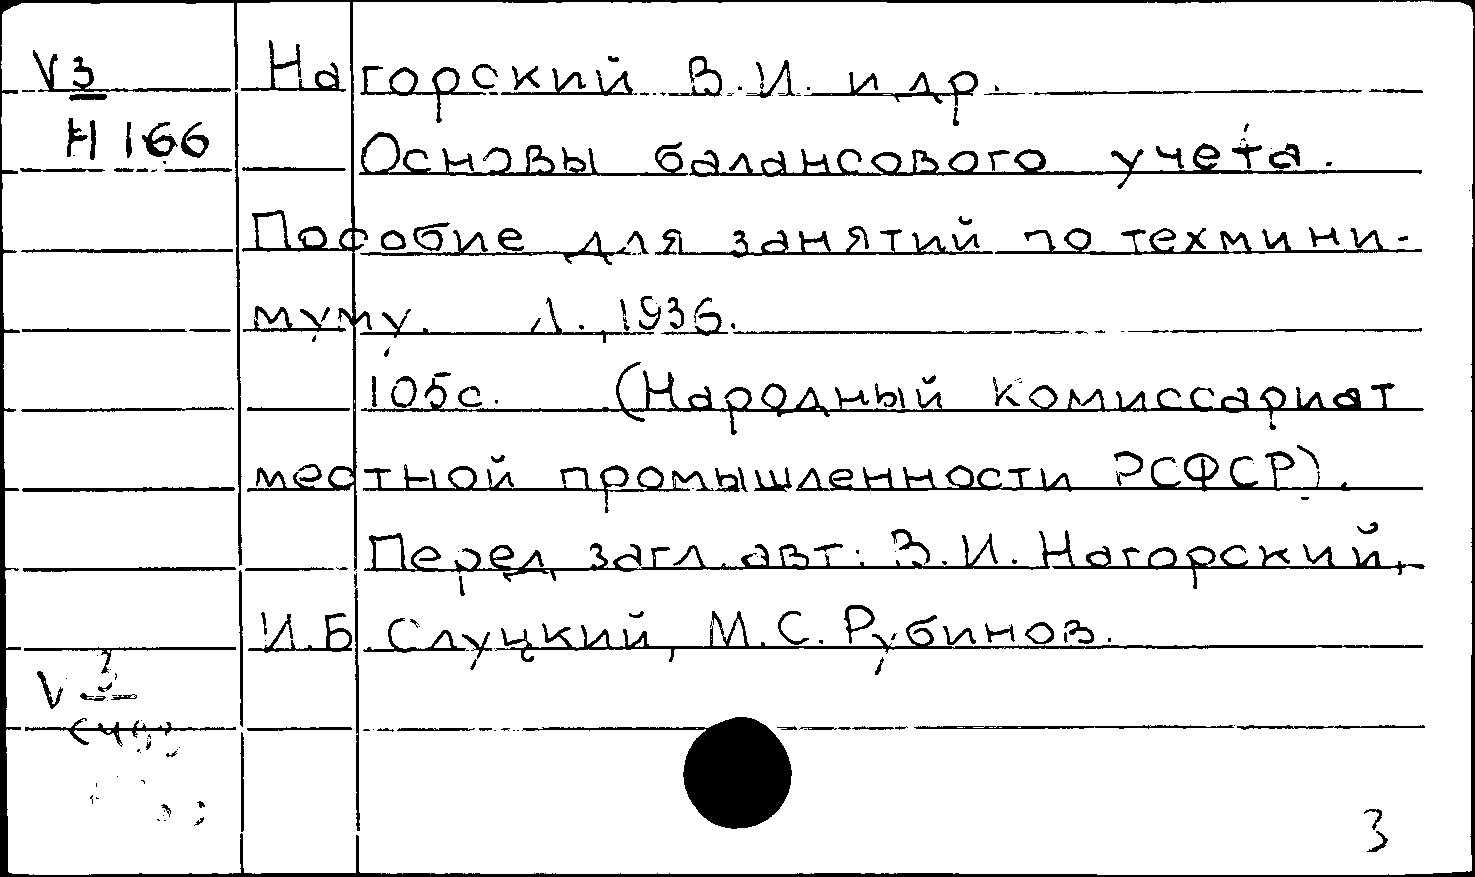 V3 Нагорский В.И. и др.
Н 166 Основы балансового учета.
Пособие для занятий по технини-
муму. Л., 1936.
105с. (Народный комиссариат
местной промышленности РСФСР).
Перед загл. авт: В.И. Нагорский,
И.Б. Слуцкий, М.С. Рубинов.
V 3
3